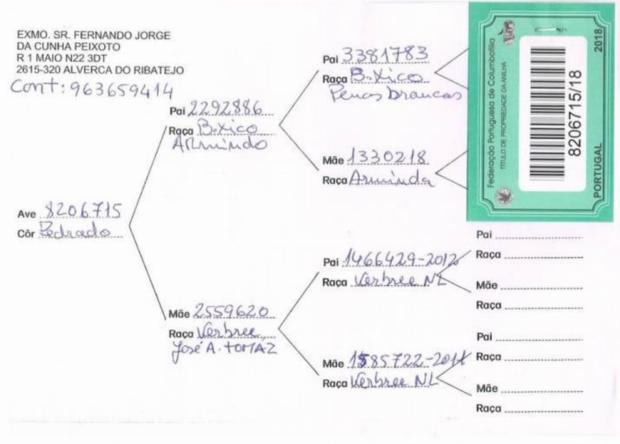 EXMO. SR. FERNANDO JORGE
DA CUNHA PEIXOTO
R 1 MAIO N22 3DT
2615-320 ALVERCA DO RIBATEJO
Cont: 963659414
Ave 8206715
Côr Pedrado
Pai 2292886
Raça B.Xico
ARMINDO
Mãe 2559620
Raça Verbree
José A. TOMAZ
Pai 3381783
Raça B.Xico
Penas brancas
Mãe 1330218
Raça Arminda
Pai 1466429-2012
Raça Verbree NL
Mãe 1585722-2011
Raça Verbree NL
Federação Portuguesa de Columbofilia
TÍTULO DE PROPRIEDADE DA ANILHA
8206715/18
2018
PORTUGAL
Pai
Raça
Mãe
Raça
Pai
Raça
Mãe
Raça